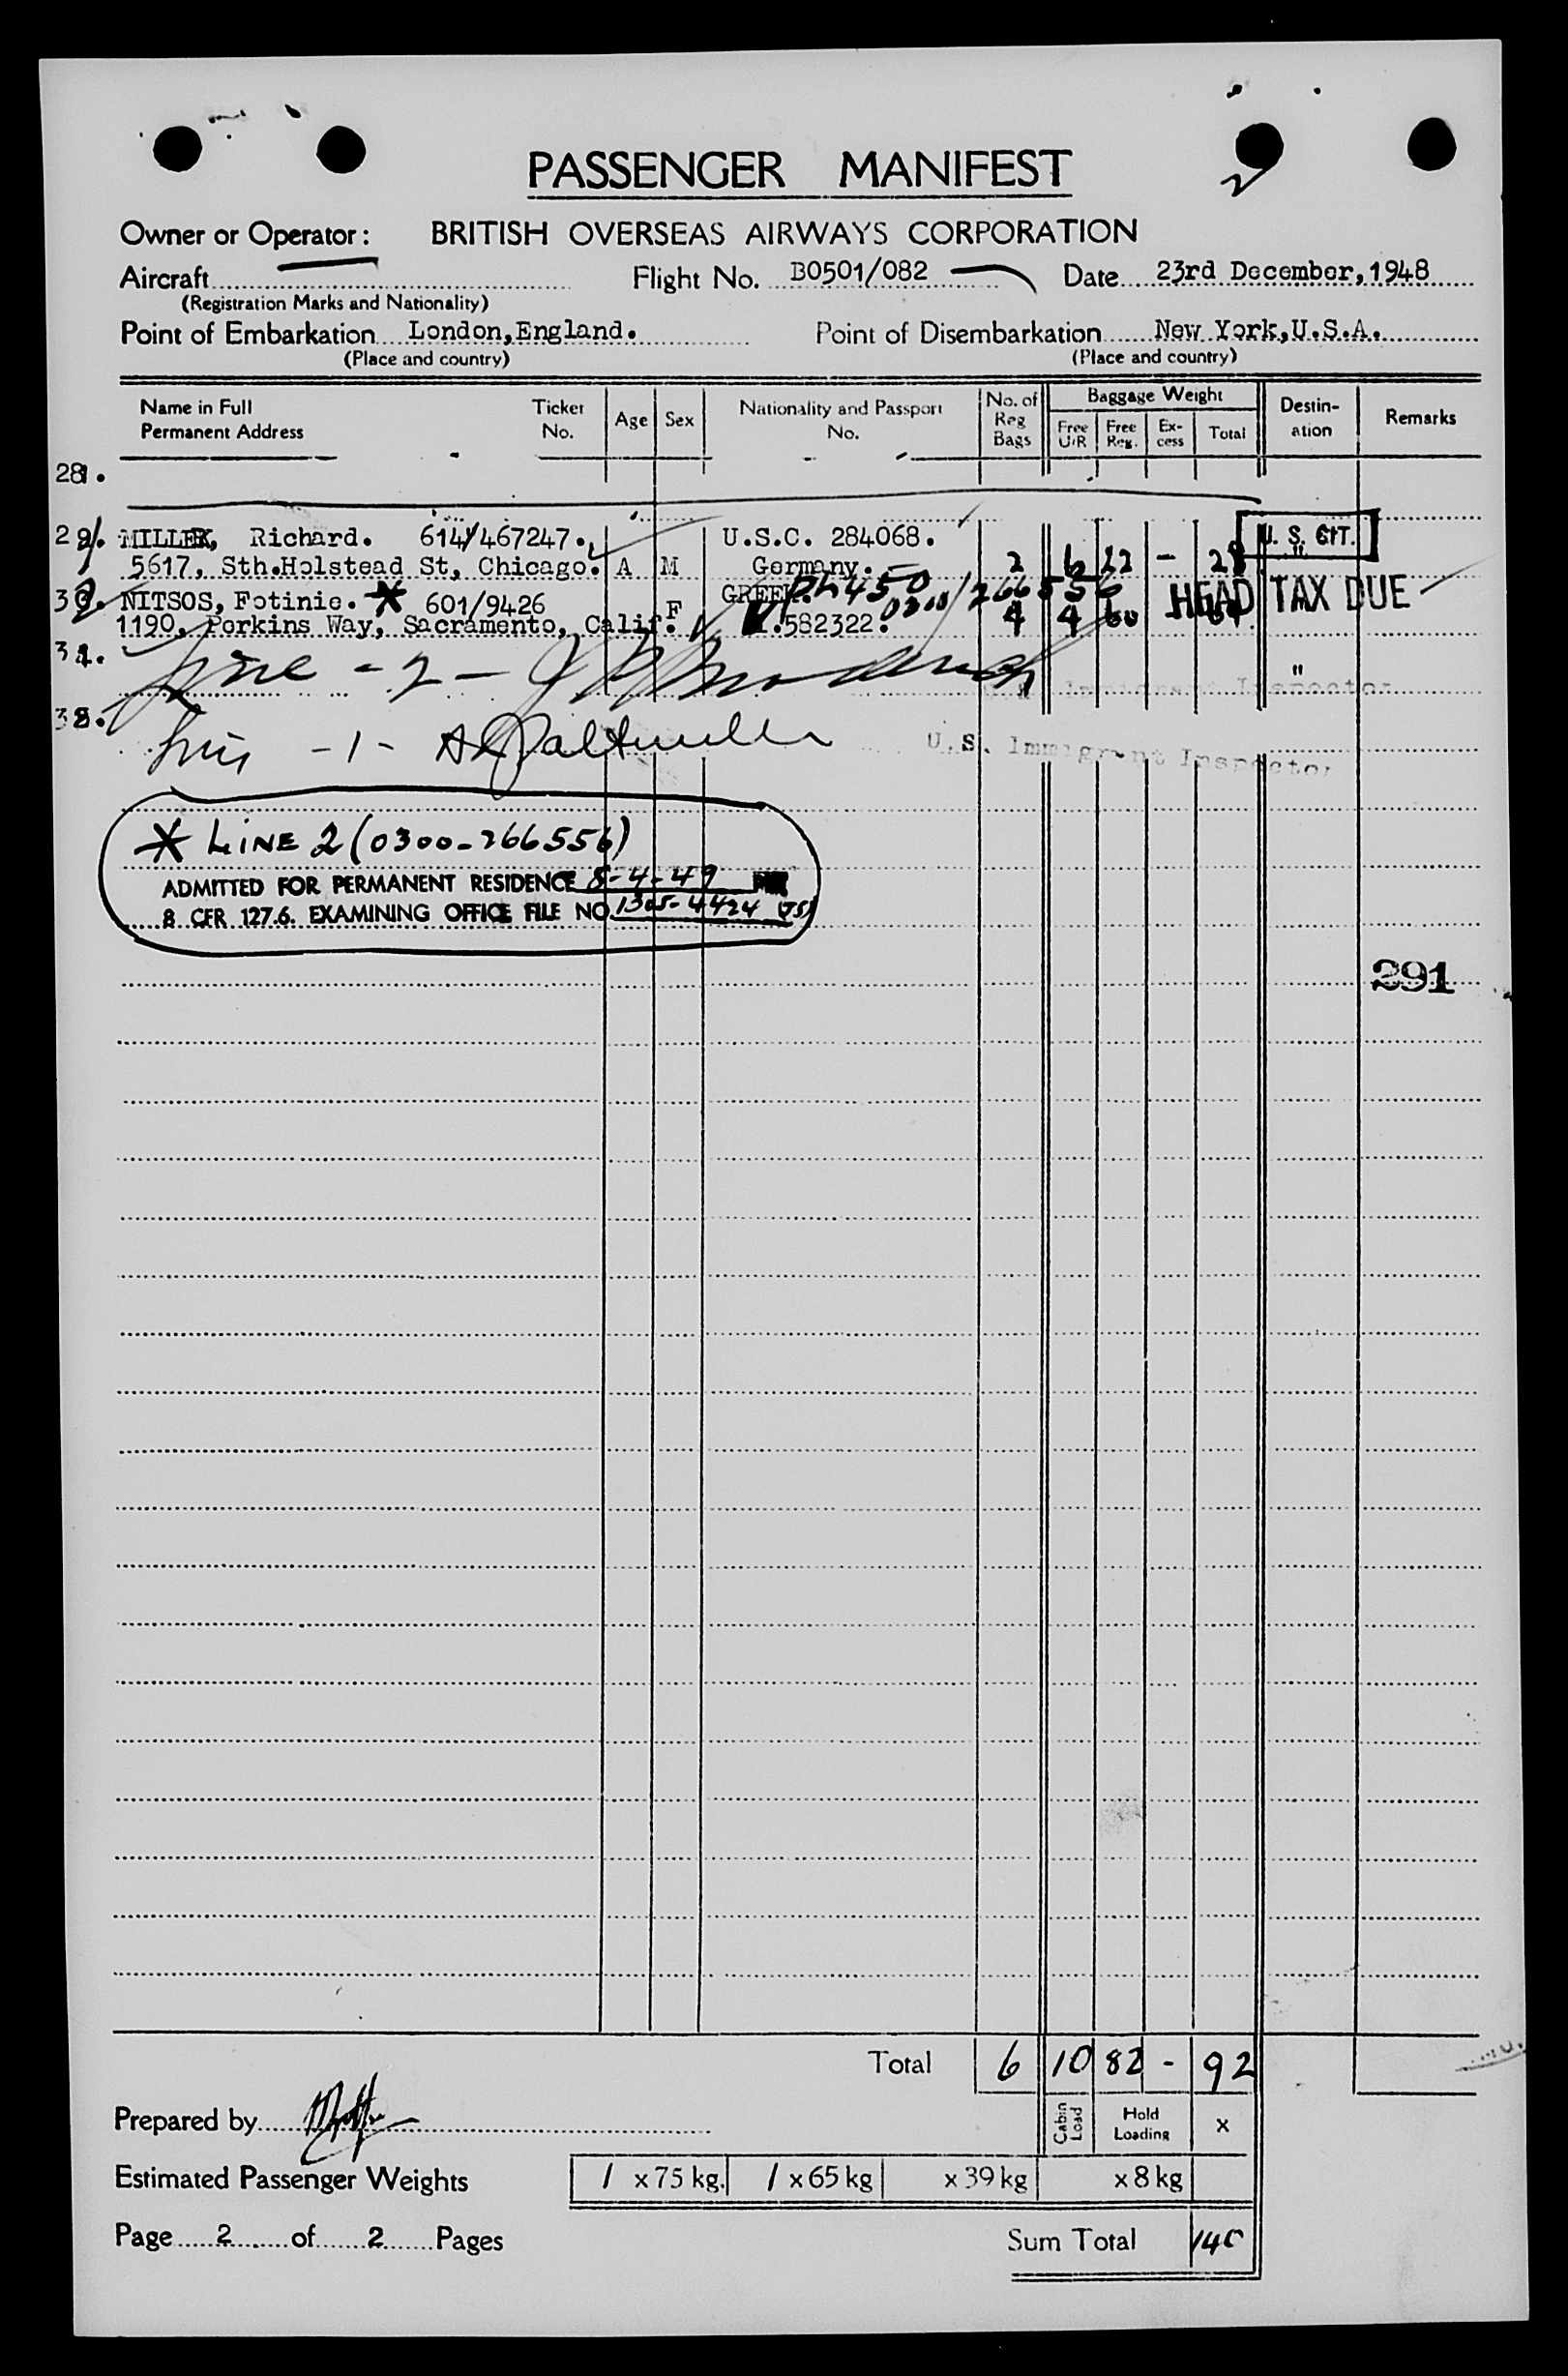 PASSENGER MANIFEST
2
Owner or Operator: BRITISH OVERSEAS AIRWAYS CORPORATION
Aircraft Flight No. BO501/082 Date 23rd December, 1948
(Registration Marks and Nationality)
Point of Embarkation London, England. Point of Disembarkation New York, U.S.A.
(Place and country) (Place and country)
Name in Full Permanent Address Ticket No. Age Sex Nationality and Passport No. No. of Reg Bags Baggage Weight Free U/R Free Reg. Excess Total Destination Remarks
28.
29. MILLER, Richard. 614/467247. U.S.C. 284068. U. S. CIT.
5617, Sth.Holstead St, Chicago. A M Germany. 2 6 22 - 28 "
30. NITSOS, Fotinie. * 601/9426 F GREEK. Ph 450 0300/266556 HEAD TAX DUE
1190, Perkins Way, Sacramento, Calif. .582322. 4 4 60
31. Line - 2 - "
Immigrant Inspector
32.
- 1 - U.S. Immigrant Inspector
* LINE 2 (0300-266556)
ADMITTED FOR PERMANENT RESIDENCE 8-4-49
8 CFR 127.6. EXAMINING OFFICE FILE NO. 1305-4424 (JS)
291
Total 6 10 82 - 92
Prepared by Cabin Load Hold Loading x
Estimated Passenger Weights 1 x 75 kg. 1 x 65 kg x 39 kg x 8 kg
Page 2 of 2 Pages Sum Total 140